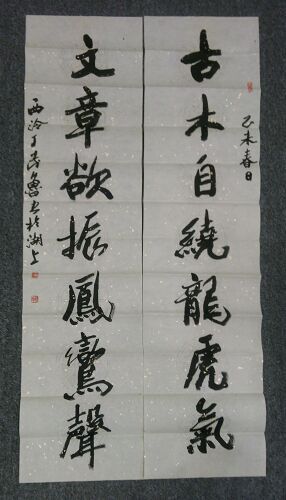 己未春日
古木自繞龍虎氣
文章欲振鳳鸞聲
西泠丁茂魯书於湖上